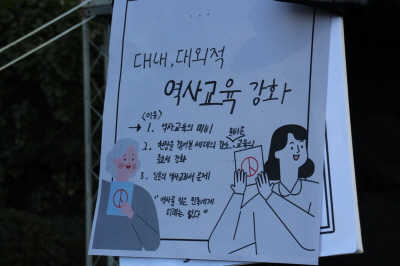 대내, 대외적
역사교육 강화
<이유>
→ 1. 역사교육의 미비
올바른
2. 현장을 겪어본 세대의 감소, 교육의
중요성 강화
3. 일본의 역사교과서 문제
"역사를 잊은 민족에게
미래는 없다"